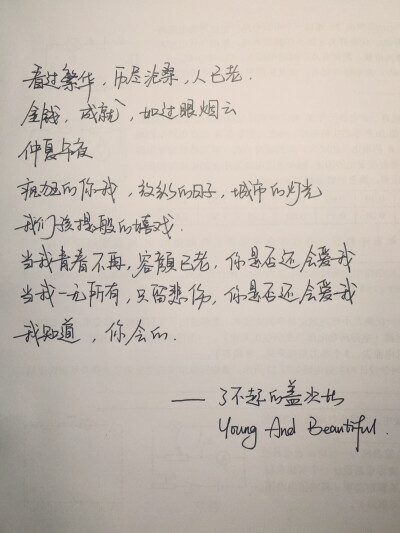 看过繁华，历尽沧桑，人已老.
金钱，成就，如过眼烟云
仲夏午夜
疯狂的你我，放纵的日子，城市的灯光
我们孩提般的嬉戏.
当我青春不再，容颜已老，你是否还会爱我
当我一无所有，只留悲伤，你是否还会爱我
我知道，你会的.
—— 了不起的盖茨比
Young And Beautiful.